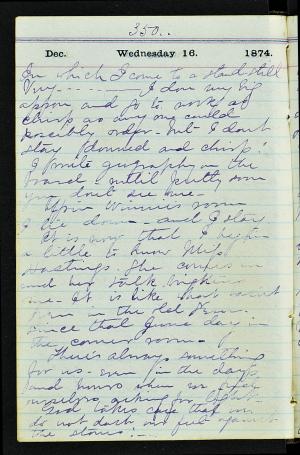 350..
Dec. Wednesday 16. 1874.
In which I come to a stand still
Very - - - - - - I don my big
apron and go to work as
chirp as any one could
possibly order - but I don't
stay "donned and chirp"!
I write geography on the
board until pretty soon
you don't see me -
Up in Winnie's room
I lie down - and I stay
It is now that I begin
a little to know Miss
Hastings. She comes in
and her talk brightens
me. It is like that
in the old
since that June day in
the corner room -
There's always something
for us - even in the days
and hours when we
ourselves asking for light.
God takes care that we
do not dash our feet against
the stones! -